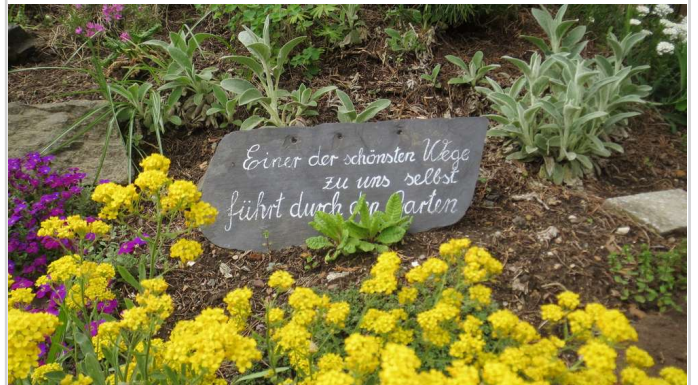 Einer der schönsten Wege
zu uns selbst
führt durch den Garten